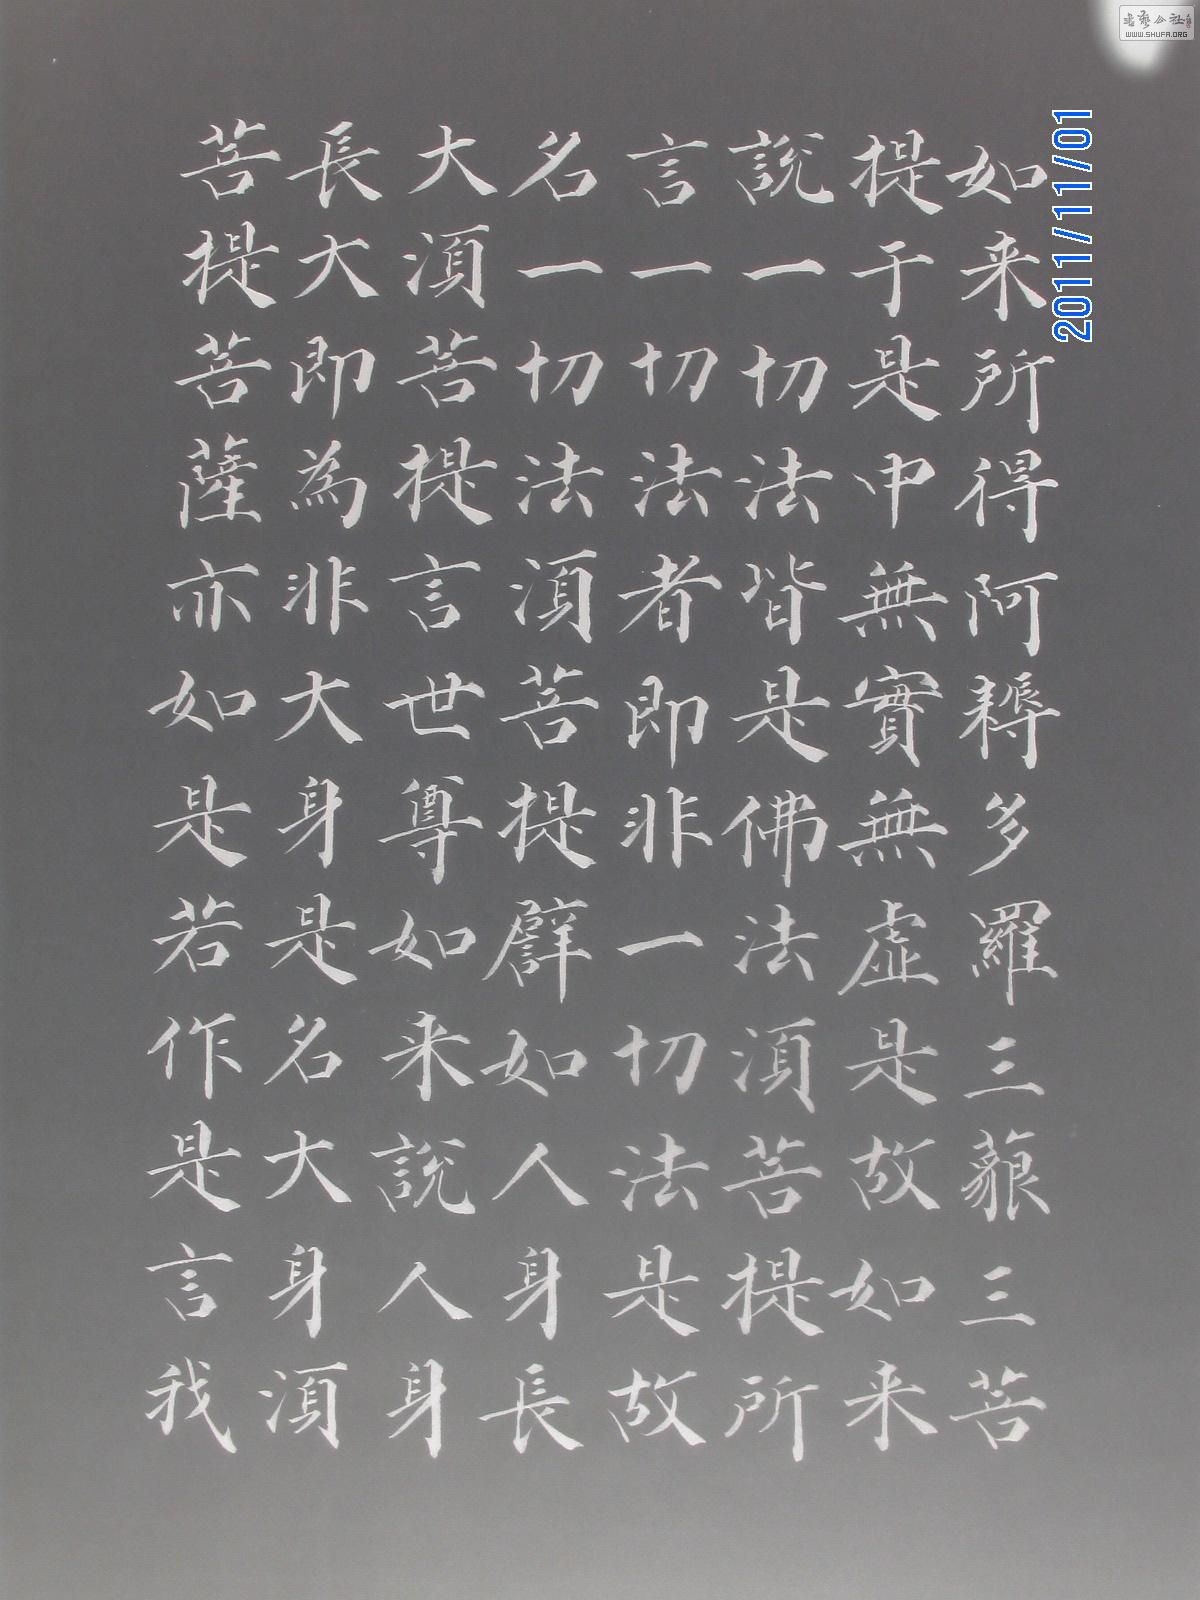 如来所得阿耨多羅三藐三菩
提于是中無實無虛是故如来
說一切法皆是佛法湏菩提所
言一切法者即非一切法是故
名一切法湏菩提譬如人身長
大湏菩提言世尊如来說人身
長大即為非大身是名大身湏
菩提菩薩亦如是若作是言我
2011/11/01
书艺公社
www.SHUFA.ORG